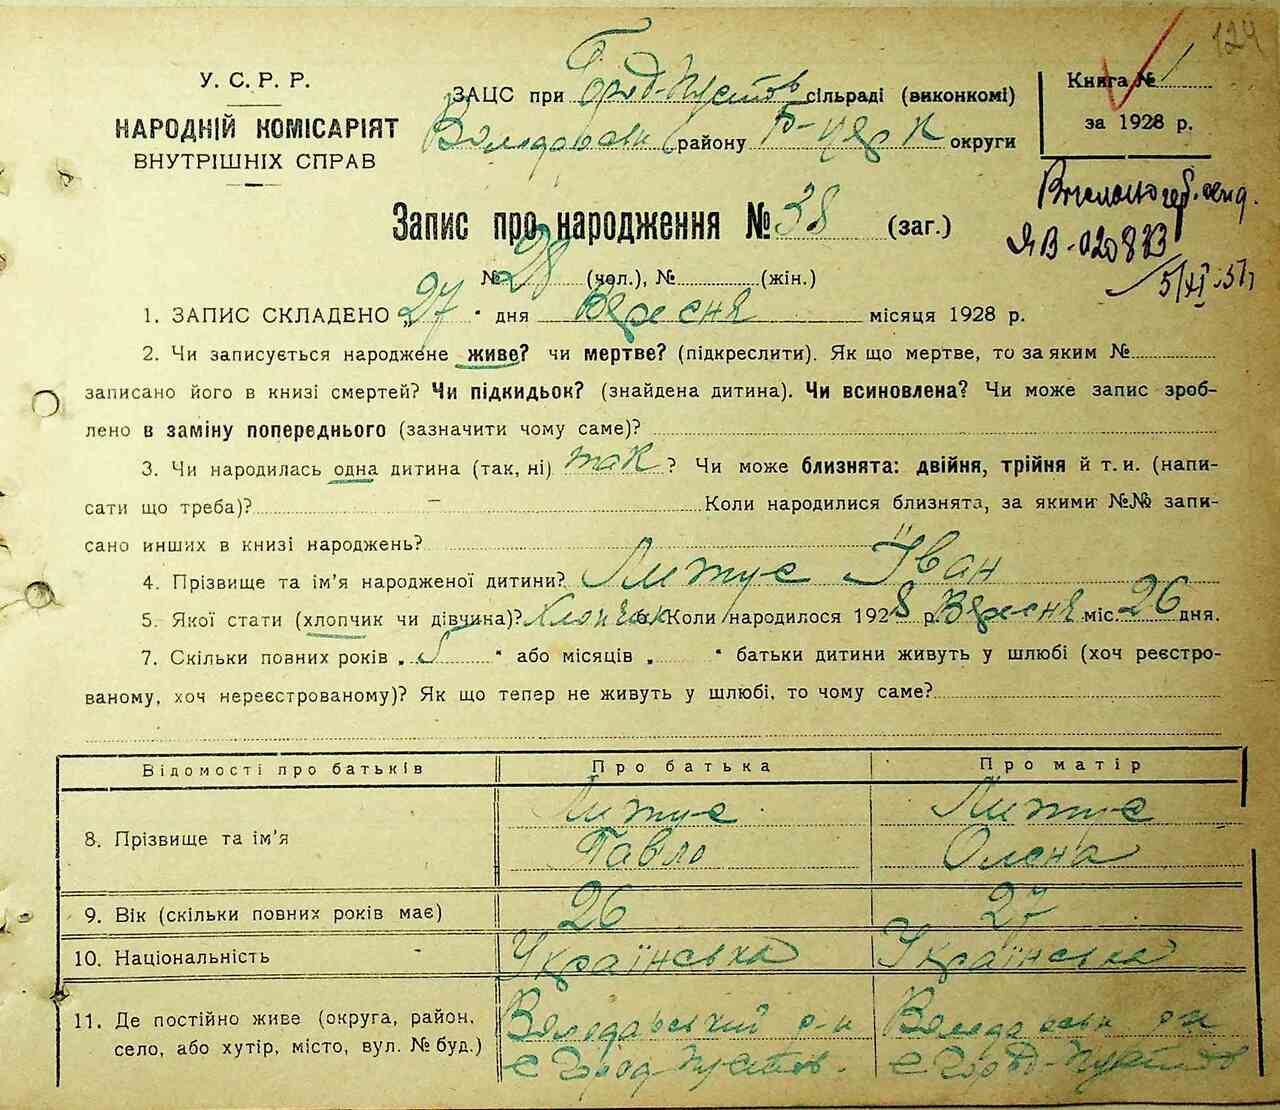 124
У.С.Р.Р.
НАРОДНІЙ КОМІСАРІЯТ
ВНУТРІШНІХ СПРАВ
ЗАЦС при Город-Пустов сільраді (виконкомі)
Володарськ району Б-церк округи
Книга № 1
за 1928 р.
Запис про народження № 38 (заг.)
№ 28 (чол.), № (жін.)
ЯВ-020833
5/XI
1. ЗАПИС СКЛАДЕНО „27" дня Вересня місяця 1928 р.
2. Чи записується народжене живе? чи мертве? (підкреслити). Як що мертве, то за яким №
записано його в книзі смертей? Чи підкидьок? (знайдена дитина). Чи всиновлена? Чи може запис зроб-
лено в заміну попереднього (зазначити чому саме)?
3. Чи народилась одна дитина (так, ні) так? Чи може близнята: двійня, трійня й т. и. (напи-
сати що треба)? – Коли народилися близнята, за якими №№ запи-
сано инших в книзі народжень?
4. Прізвище та ім'я народженої дитини? Литус Іван
5. Якої стати (хлопчик чи дівчина)? Хлопчик 6. Коли народилося 1928 р. Вересня міс. 26 дня.
7. Скільки повних років „5" або місяців „ " батьки дитини живуть у шлюбі (хоч реєстро-
ваному, хоч нереєстрованому)? Як що тепер не живуть у шлюбі, то чому саме?
Відомості про батьків Про батька Про матір
8. Прізвище та ім'я Литус Павло Литус Олена
9. Вік (скільки повних років має) 26 27
10. Національність Українська Українська
11. Де постійно живе (округа, район, Володарський р-н Володарськ р-н
село, або хутір, місто, вул. № буд.) с Город-Пустов. с Город-Пустов